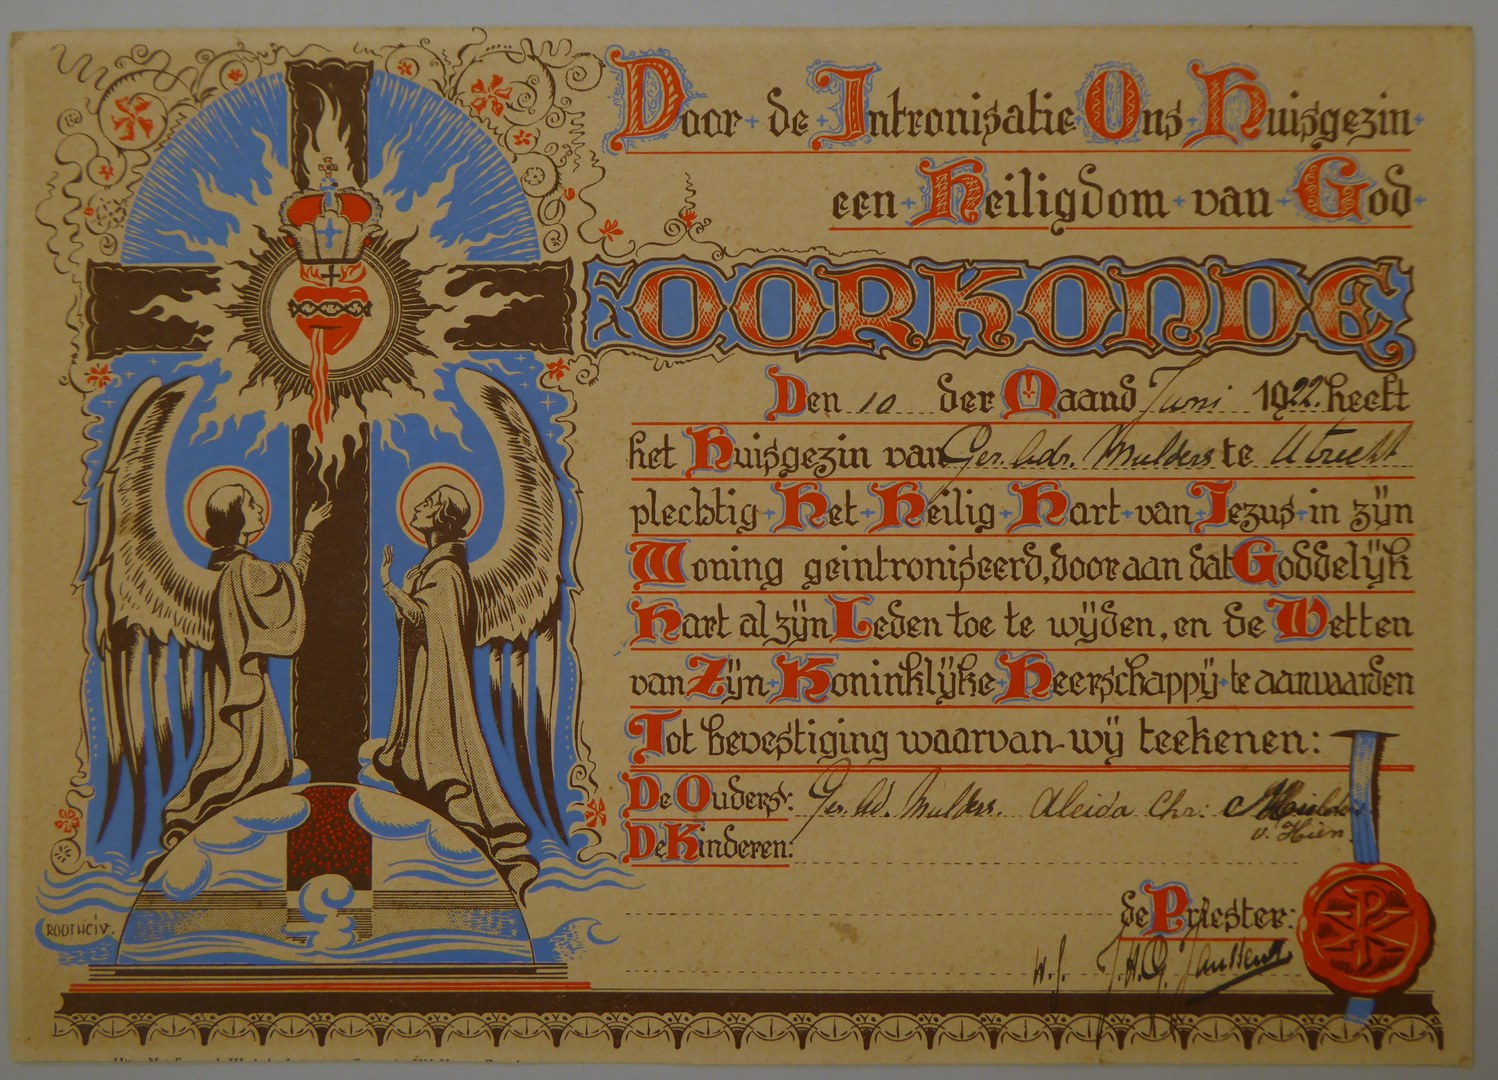 Door de Intronisatie Ons Huisgezin
een Heiligdom van God
OORKONDE
Den 10 der Maand Juni 1922 heeft
het Huisgezin van Ger. Adr. Mulders te Utrecht
plechtig Het Heilig Hart van Jezus in zijn
Woning geintroniseerd, door aan dat Goddelijk
Hart al zijn Leden toe te wijden, en de Wetten
van Zijn Koninklijke Heerschappij te aanvaarden
Tot bevestiging waarvan wij teekenen:
De Ouders: Ger. Ad. Mulders. Aleida Chr: Mulders
v. Hien
De Kinderen:
de Priester:
J.H.G. Janssen